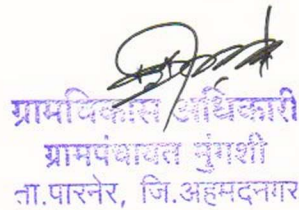 ग्रामविकास अधिकारी
ग्रामपंचायत मुंगशी
ता.पारनेर, जि.अहमदनगर